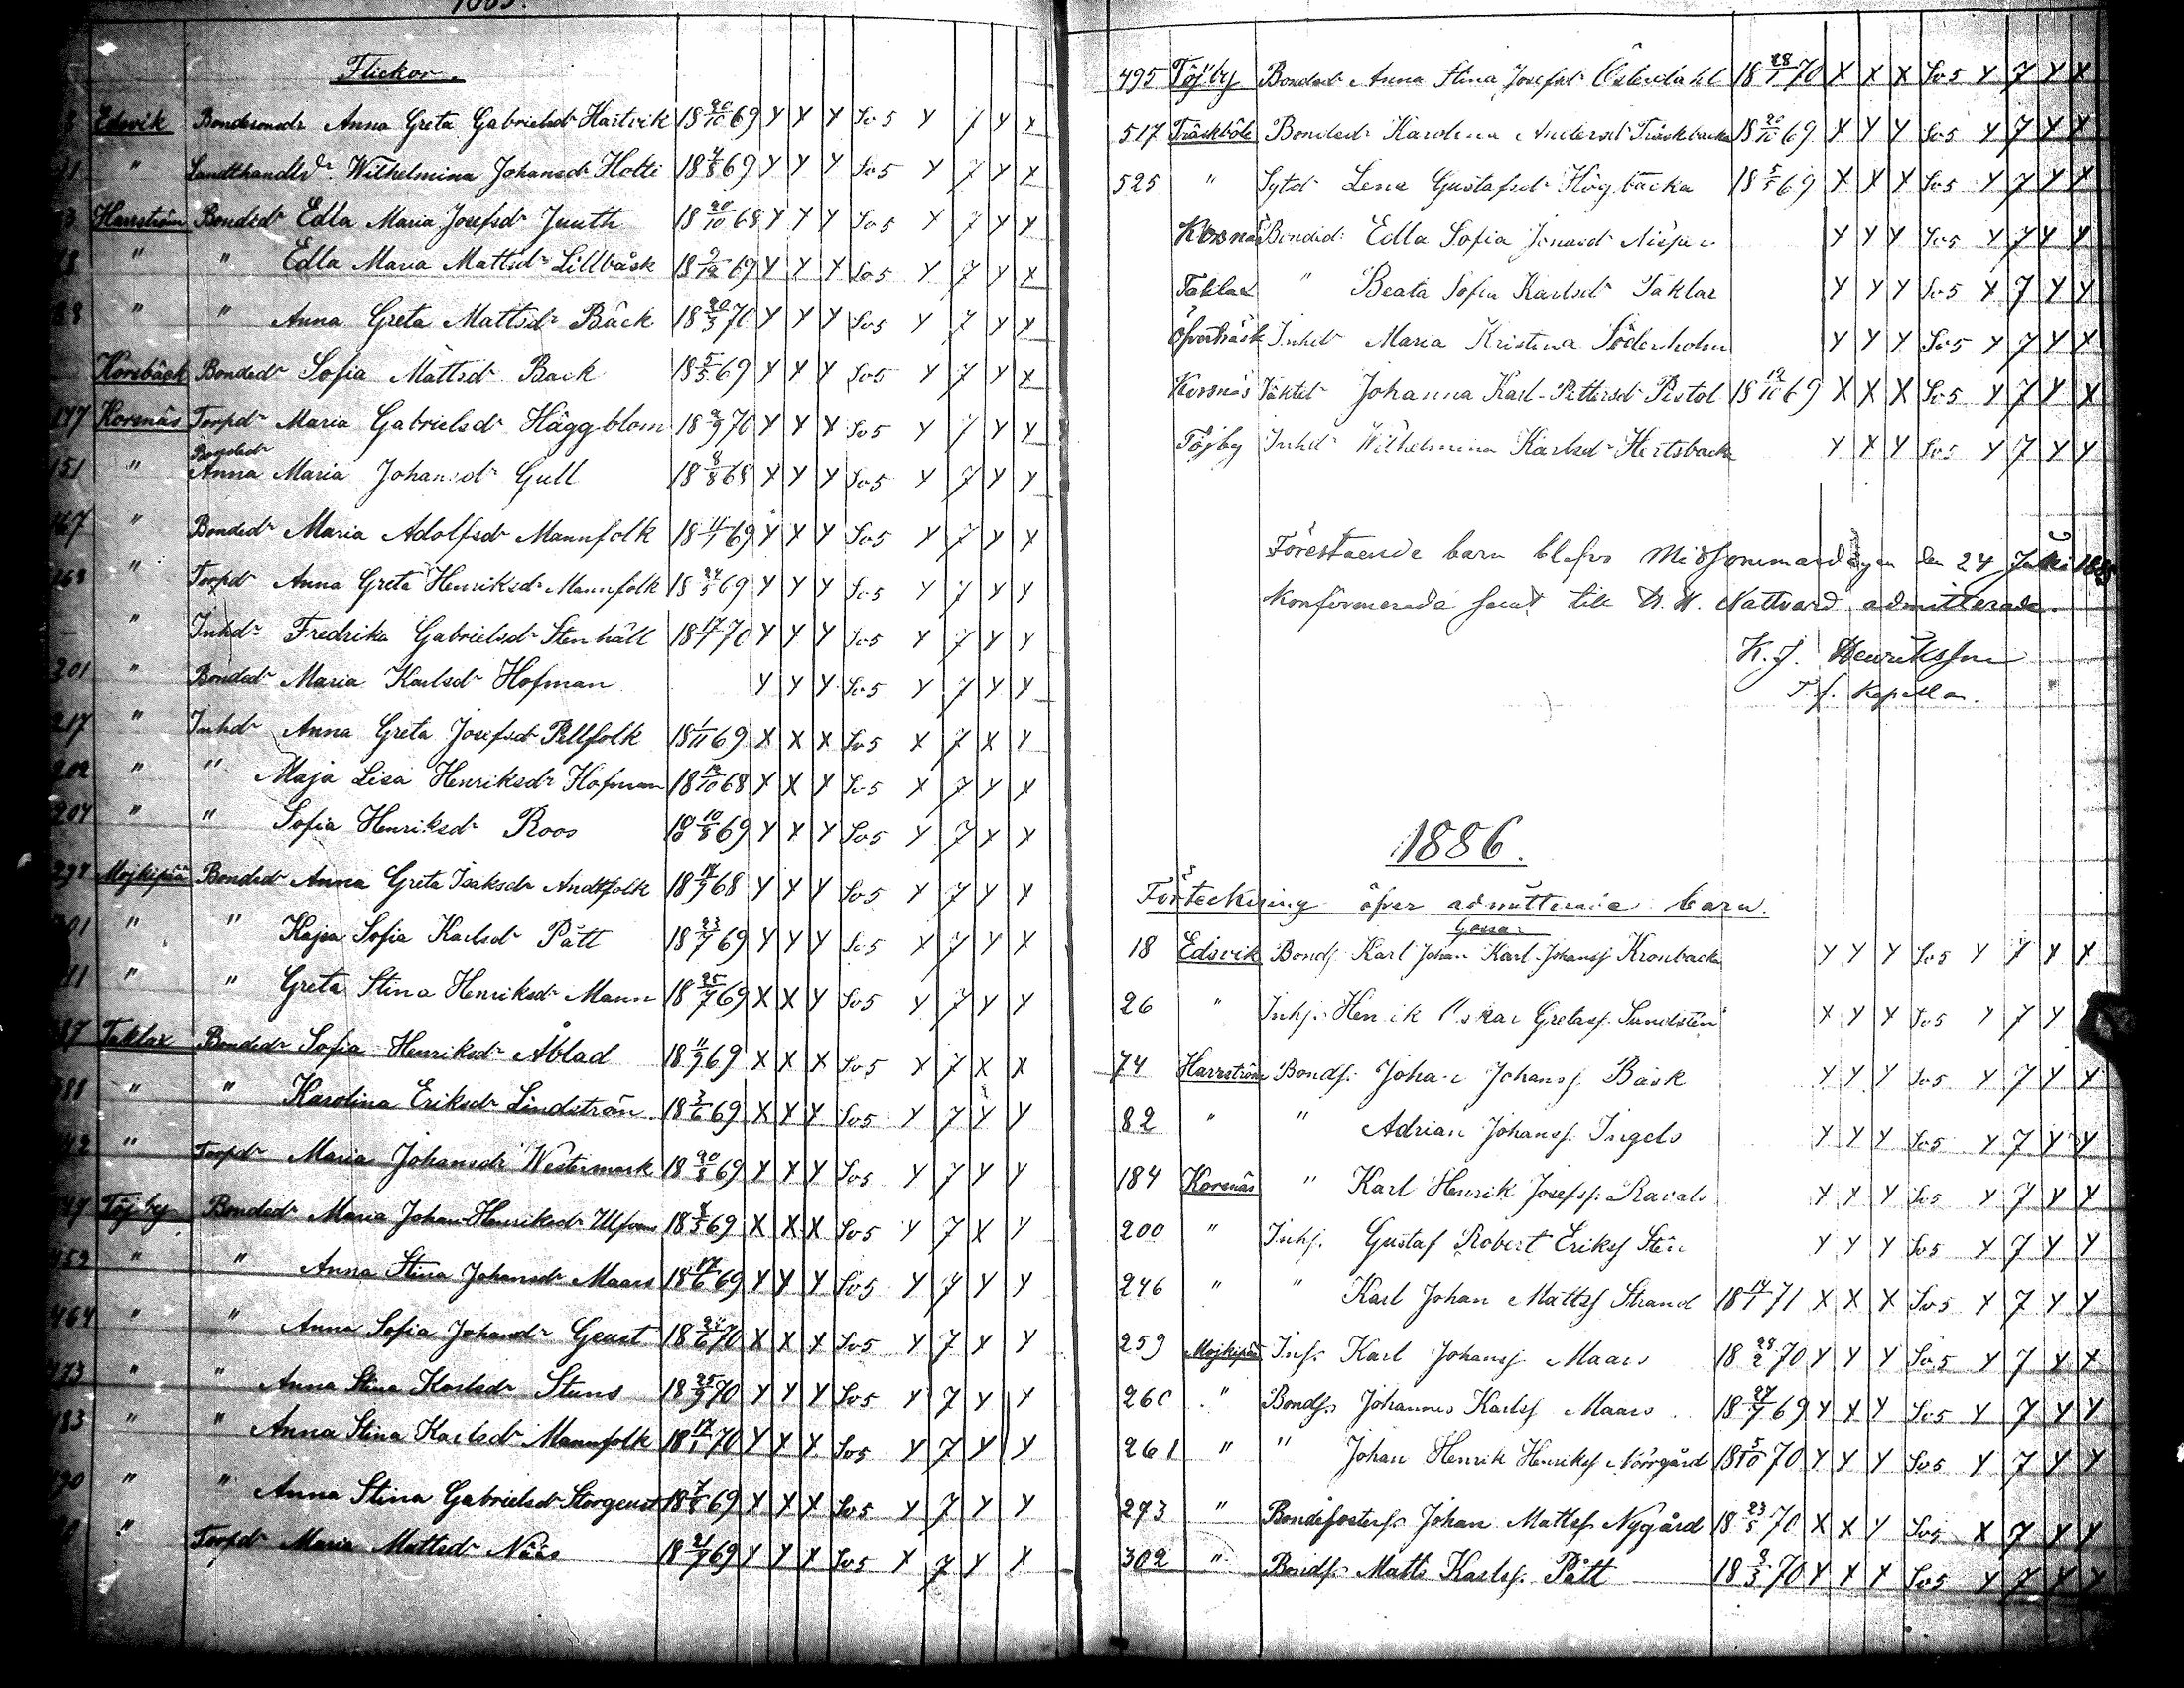 Flickor.
Edsvik Bondesonsdr Anna Greta Gabrielsdr Hartvik 18 20/10 69 X X X Sv5 X 7 X X
" Landthandlsdr. Wilhelmina Johansdr Holti 18 4/8 69 X X X Sv5 X 7 X X
Harrström Bondedr Edla Maria Josefsdr Juuth 18 20/10 68 X X X Sv5 X 7 X X
" " Edla Maria Mattsdr Lillbåsk 18 9/12 69 X X X Sv5 X 7 X X
" " Anna Greta Mattsdr Bäck 18 20/3 70 X X X Sv5 X 7 X X
Korsbäck Bondedr Sofia Mattsdr Back 18 5/5 69 X X X Sv5 X 7 X X
147 Korsnäs Torpdr Maria Gabrielsdr Häggblom 18 2/9 70 X X X Sv5 X 7 X X
151 " Bondedr Anna Maria Johansdr Gull 18 8/8 68 X X X Sv5 X 7 X X
167 " Bondedr Maria Adolfsdr Mannfolk 18 11/1 69 X X X Sv5 X 7 X X
" Torpdr Anna Greta Henriksdr Mannfolk 18 24/5 69 X X X Sv5 X 7 X X
" Inhdr Fredrika Gabrielsdr Stenhäll 18 17/1 70 X X X Sv5 X 7 X X
201 " Bondedr Maria Karlsdr Hofman X X X Sv5 X 7 X X
217 " Inhdr Anna Greta Josefsdr Pellfolk 18 1/11 69 X X X Sv5 X 7 X X
202 " " Maja Lisa Henriksdr Hofman 18 12/10 68 X X X Sv5 X 7 X X
204 " " Sofia Henriksdr Roos 18 10/8 69 X X X Sv5 X 7 X X
297 Mojkipää Bondedr Anna Greta Isaksdr Andtfolk 18 12/9 68 X X X Sv5 X 7 X X
301 " " Kajsa Sofia Karlsdr Pått 18 23/7 69 X X X Sv5 X 7 X X
" " Greta Stina Henriksdr Mann 18 25/7 69 X X X Sv5 X 7 X X
Taklax Bondedr Sofia Henriksdr Åblad 18 11/9 69 X X X Sv5 X 7 X X
" " Karolina Eriksdr Lindström 18 3/6 69 X X X Sv5 X 7 X X
" Torpdr Maria Johansdr Westermark 18 20/8 69 X X X Sv5 X 7 X X
Töjby Bondedr Maria Johan-Henriksdr Ulfves 18 8/5 69 X X X Sv5 X 7 X X
459 " " Anna Stina Johansdr Maars 18 17/6 69 X X X Sv5 X 7 X X
464 " " Anna Sofia Johansdr Geust 18 24/6 70 X X X Sv5 X 7 X X
473 " " Anna Stina Karlsdr Stuns 18 25/9 70 X X X Sv5 X 7 X X
483 " " Anna Stina Karlsdr Mannfolk 18 17/1 70 X X X Sv5 X 7 X X
490 " " Anna Stina Gabrielsdr Storgeust 18 7/8 69 X X X Sv5 X 7 X X
" Torpdr Maria Mattsdr Näss 18 21/9 69 X X X Sv5 X 7 X X
495 Töjby Bondedr Anna Stina Josefsdr Österdahl 18 28/1 70 X X X Sv5 X 7 X X
517 Träskböle Bondedr Karolina Andersdr Träskbacka 18 20/10 69 X X X Sv5 X 7 X X
525 " Sytdr Lena Gustafsdr Högbacka 18 5/5 69 X X X Sv5 X 7 X X
Korsnäs Bondedr Edla Sofia Jonasdr X X X Sv5 X 7 X X
Taklax " Beata Sofia Karlsdr Taklax X X X Sv5 X 7 X X
Öfverträsk Inhdr Maria Kristina Söderholm X X X Sv5 X 7 X X
Korsnäs Johanna Karl-Pettersdr Pistol 18 12/10 69 X X X Sv5 X 7 X X
Töjby Inhdr Wilhelmina Karlsdr Hertsbacka X X X Sv5 X 7 X X
Förestående barn blefvo Midsommardagen den 24 Juni 1885
konfirmerade samt till H. H. Nattvard admitterade.
K. J. Henriksson
T. f. Kapellan.
1886.
Förteckning öfver admitterade barn.
Gossar
18 Edsvik Bonds. Karl Johan Karl-Johanss Kronbacka X X X Sv5 X 7 X X
26 " Inhs. Henrik Oskar Gretass. Sundsten X X X Sv5 X 7 X
74 Harrström Bonds. Johan Johanss. Båsk X X X Sv5 X 7 X X
82 " " Adrian Johanss. Ingels X X X Sv5 X 7 X X
184 Korsnäs " Karl Henrik Josefss. Ravals X X X Sv5 X 7 X X
200 " Inhs. Gustaf Robert Erikss Sten X X X Sv5 X 7 X X
246 " " Karl Johan Mattss Strand 18 14/1 71 X X X Sv5 X 7 X X
259 Mojkipää Inhs. Karl Johanss Maars 18 28/2 70 X X X Sv5 X 7 X X
260 " Bonds. Johannes Karlss Maars 18 27/7 69 X X X Sv5 X 7 X X
261 " " Johan Henrik Henrikss Norrgård 18 5/10 70 X X X Sv5 X 7 X X
293 " Bondefosters. Johan Mattss Nygård 18 23/5 70 X X X Sv5 X 7 X X
302 " Bonds. Matts Karlss. Pått 18 8/3 70 X X X Sv5 X 7 X X